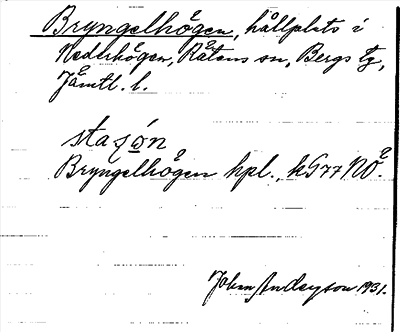 Bryngelhögen, hållplats i
Nederhögen, Rätans sn, Bergs tg,
Jämtl. l.
stasjón
Bryngelhögen hpl., kG77NÖ.
John Andersson 1931.